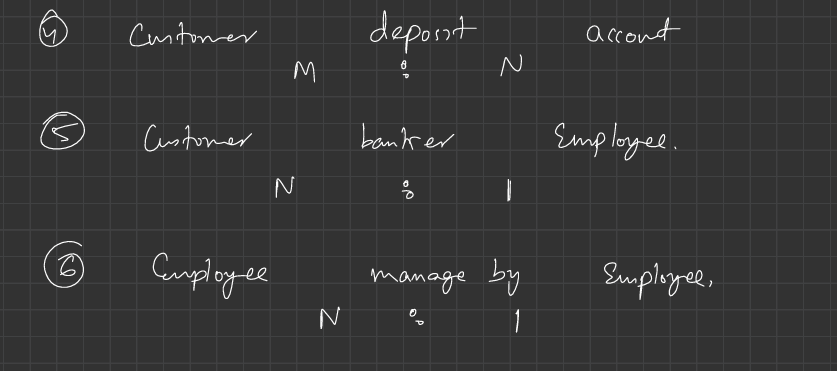 4 Customer deposit account
M : N
5 Customer banker Employee.
N : 1
6 Employee manage by Employee,
N : 1